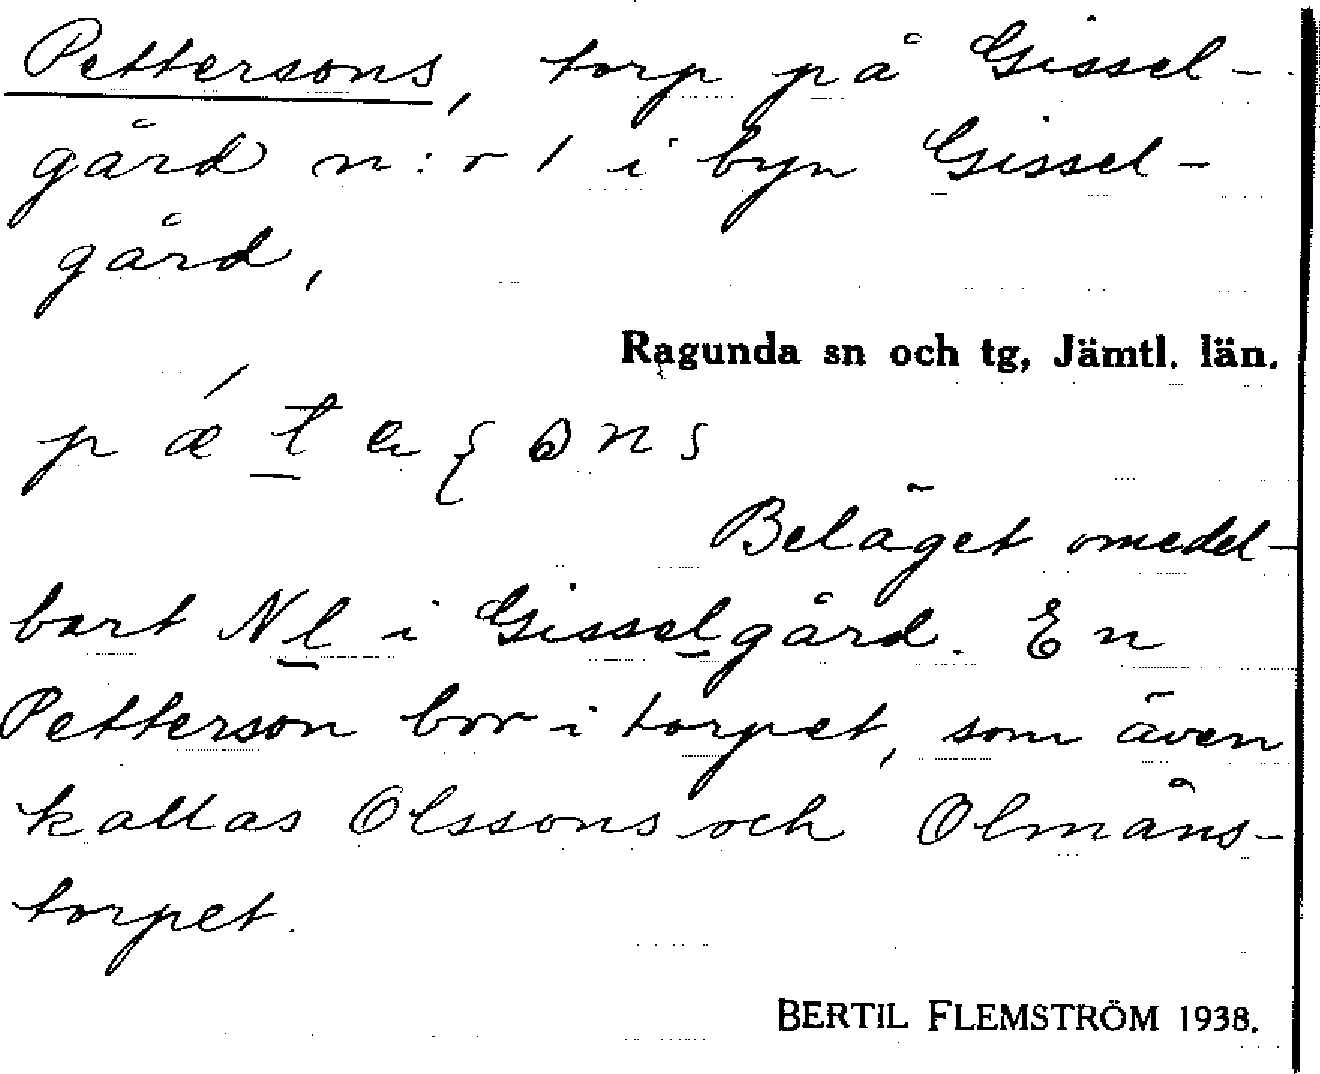 Pettersons, torp på Gissel-
gård n:r 1 i byn Gissel-
gård,
Ragunda sn och tg, Jämtl. län.
Beläget omedel-
bart Nl i Gisselgård. En
Petterson bor i torpet, som även
kallas Olssons och Olmåns-
torpet.
BERTIL FLEMSTRÖM 1938.